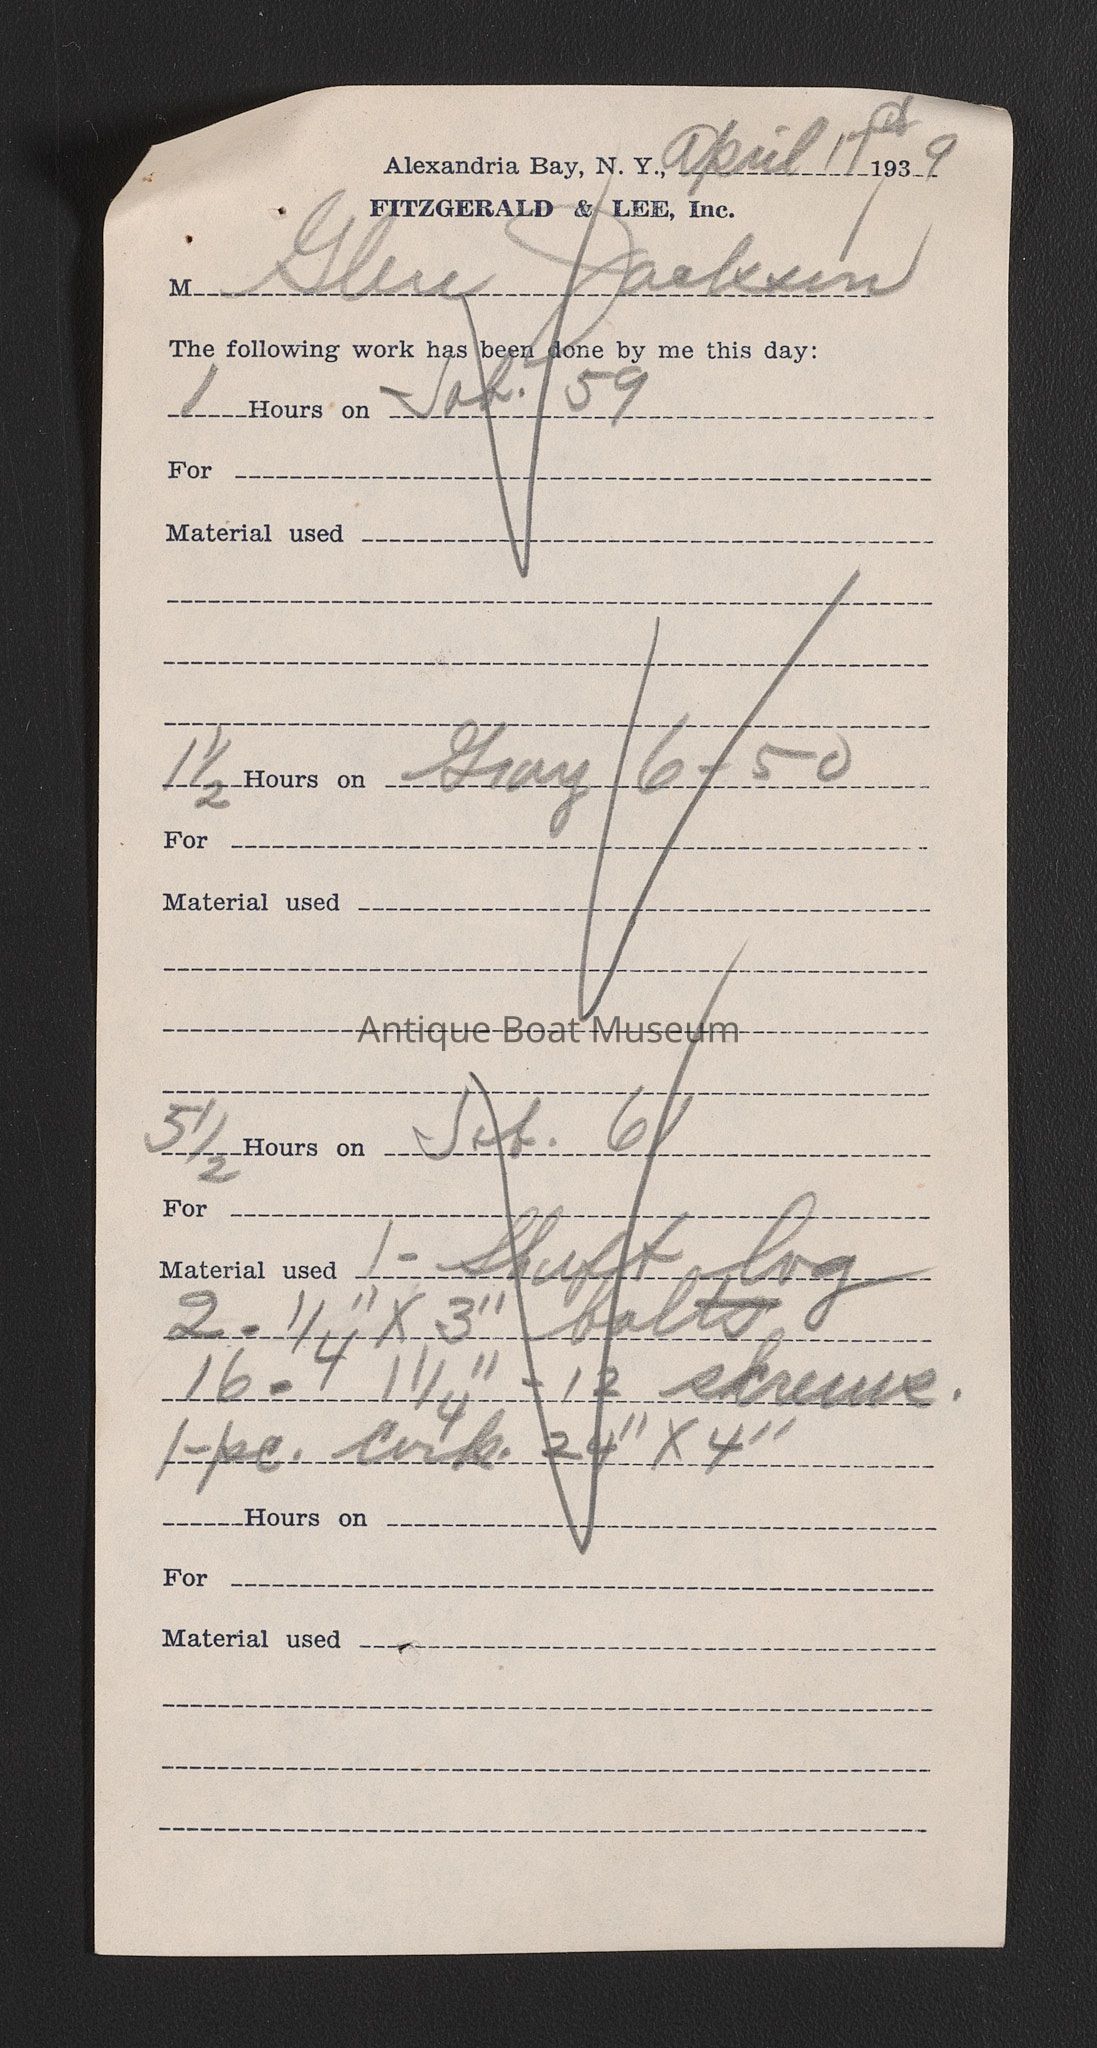 Alexandria Bay, N. Y., April 17 1939
FITZGERALD & LEE, Inc.
M Glen Jackson
The following work has been done by me this day:
1 Hours on Job. 59
For
Material used
1 1/2 Hours on Gray 6-50
For
Material used
Antique Boat Museum
5 1/2 Hours on Job. 61
For
Material used 1- Shaft log
2 - 1/4" X 3" bolts
16 - 1 1/4" - 12 skrews.
1-pc. cork. 24" X 4"
Hours on
For
Material used